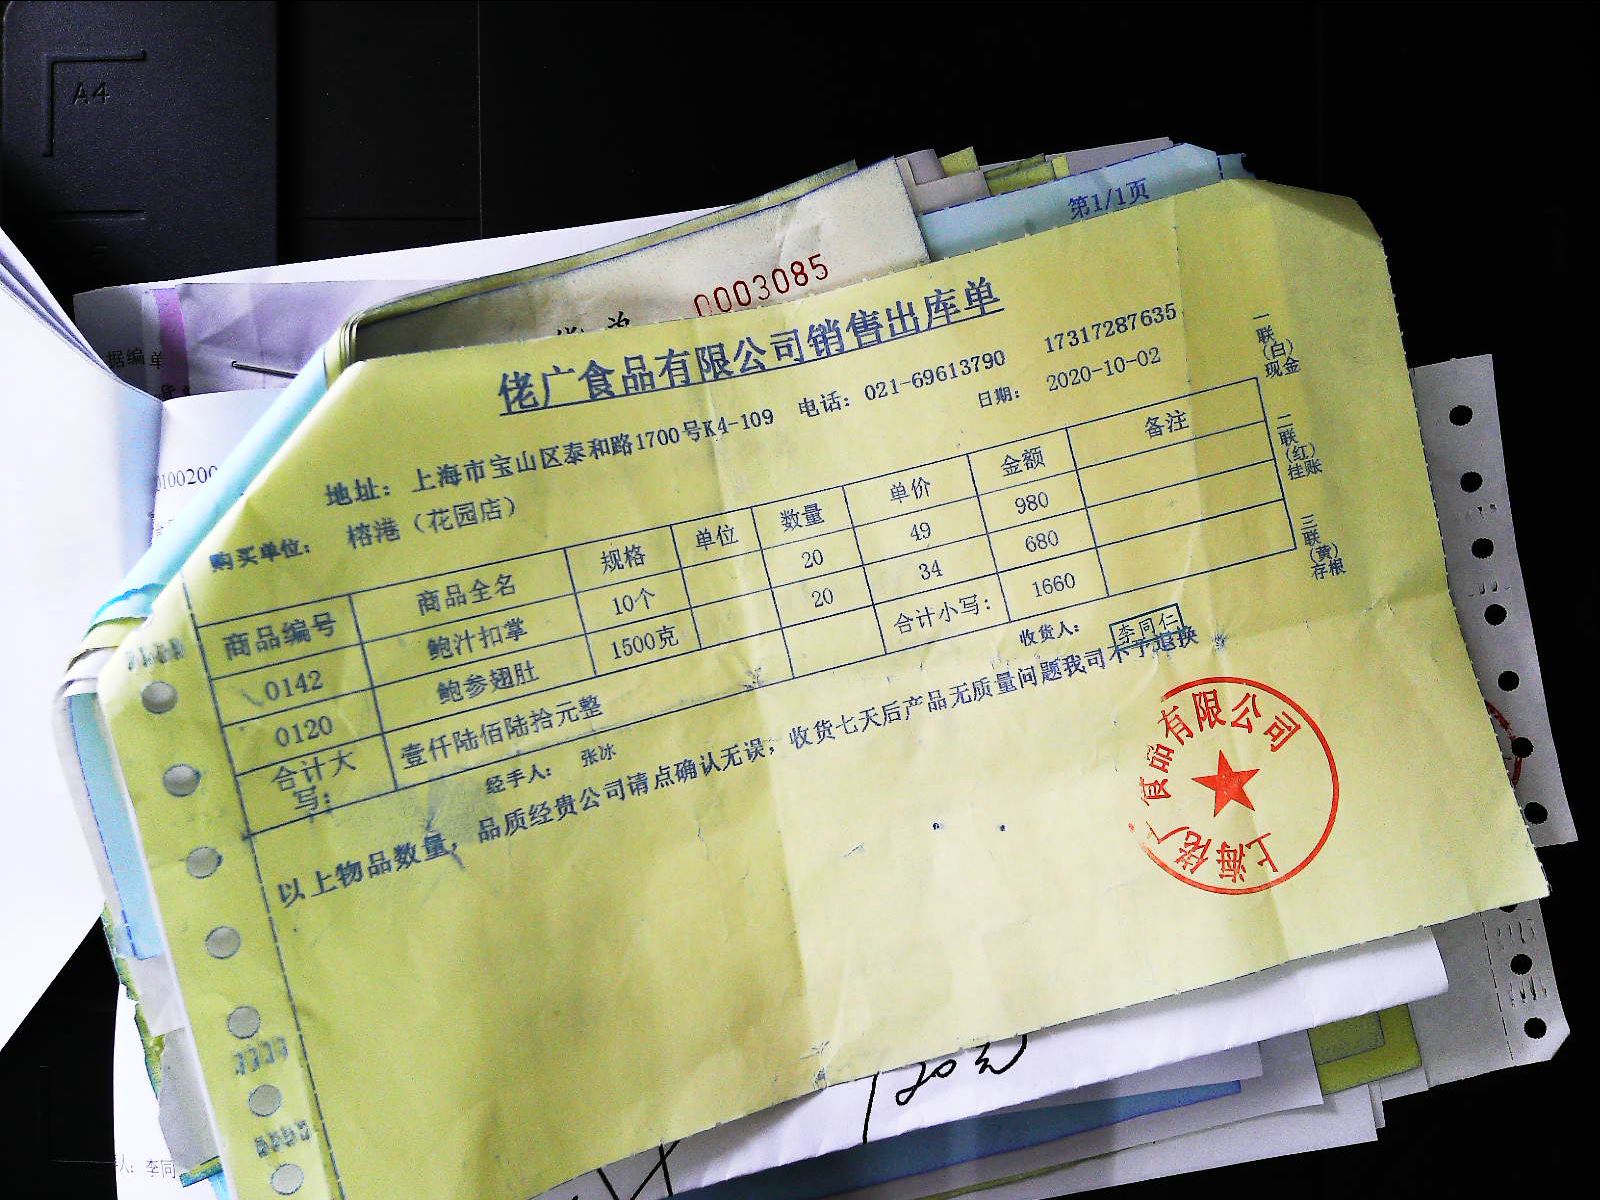 A4
第1/1页
0003085
据编单
0100200
佬广食品有限公司销售出库单
地址： 上海市宝山区泰和路1700号K4-109 电话：021-69613790 17317287635
购买单位： 榕港（花园店） 日期： 2020-10-02
商品编号 商品全名 规格 单位 数量 单价 金额 备注
0142 鲍汁扣掌 10个 20 49 980
0120 鲍参翅肚 1500克 20 34 680
合计大写： 壹仟陆佰陆拾元整 合计小写： 1660
经手人： 张冰 收货人： 李同仁
以上物品数量，品质经贵公司请点确认无误，收货七天后产品无质量问题我司不予退换
一联（白）现金
二联（红）挂账
三联（黄）存根
上海佬广食品有限公司
人：李同